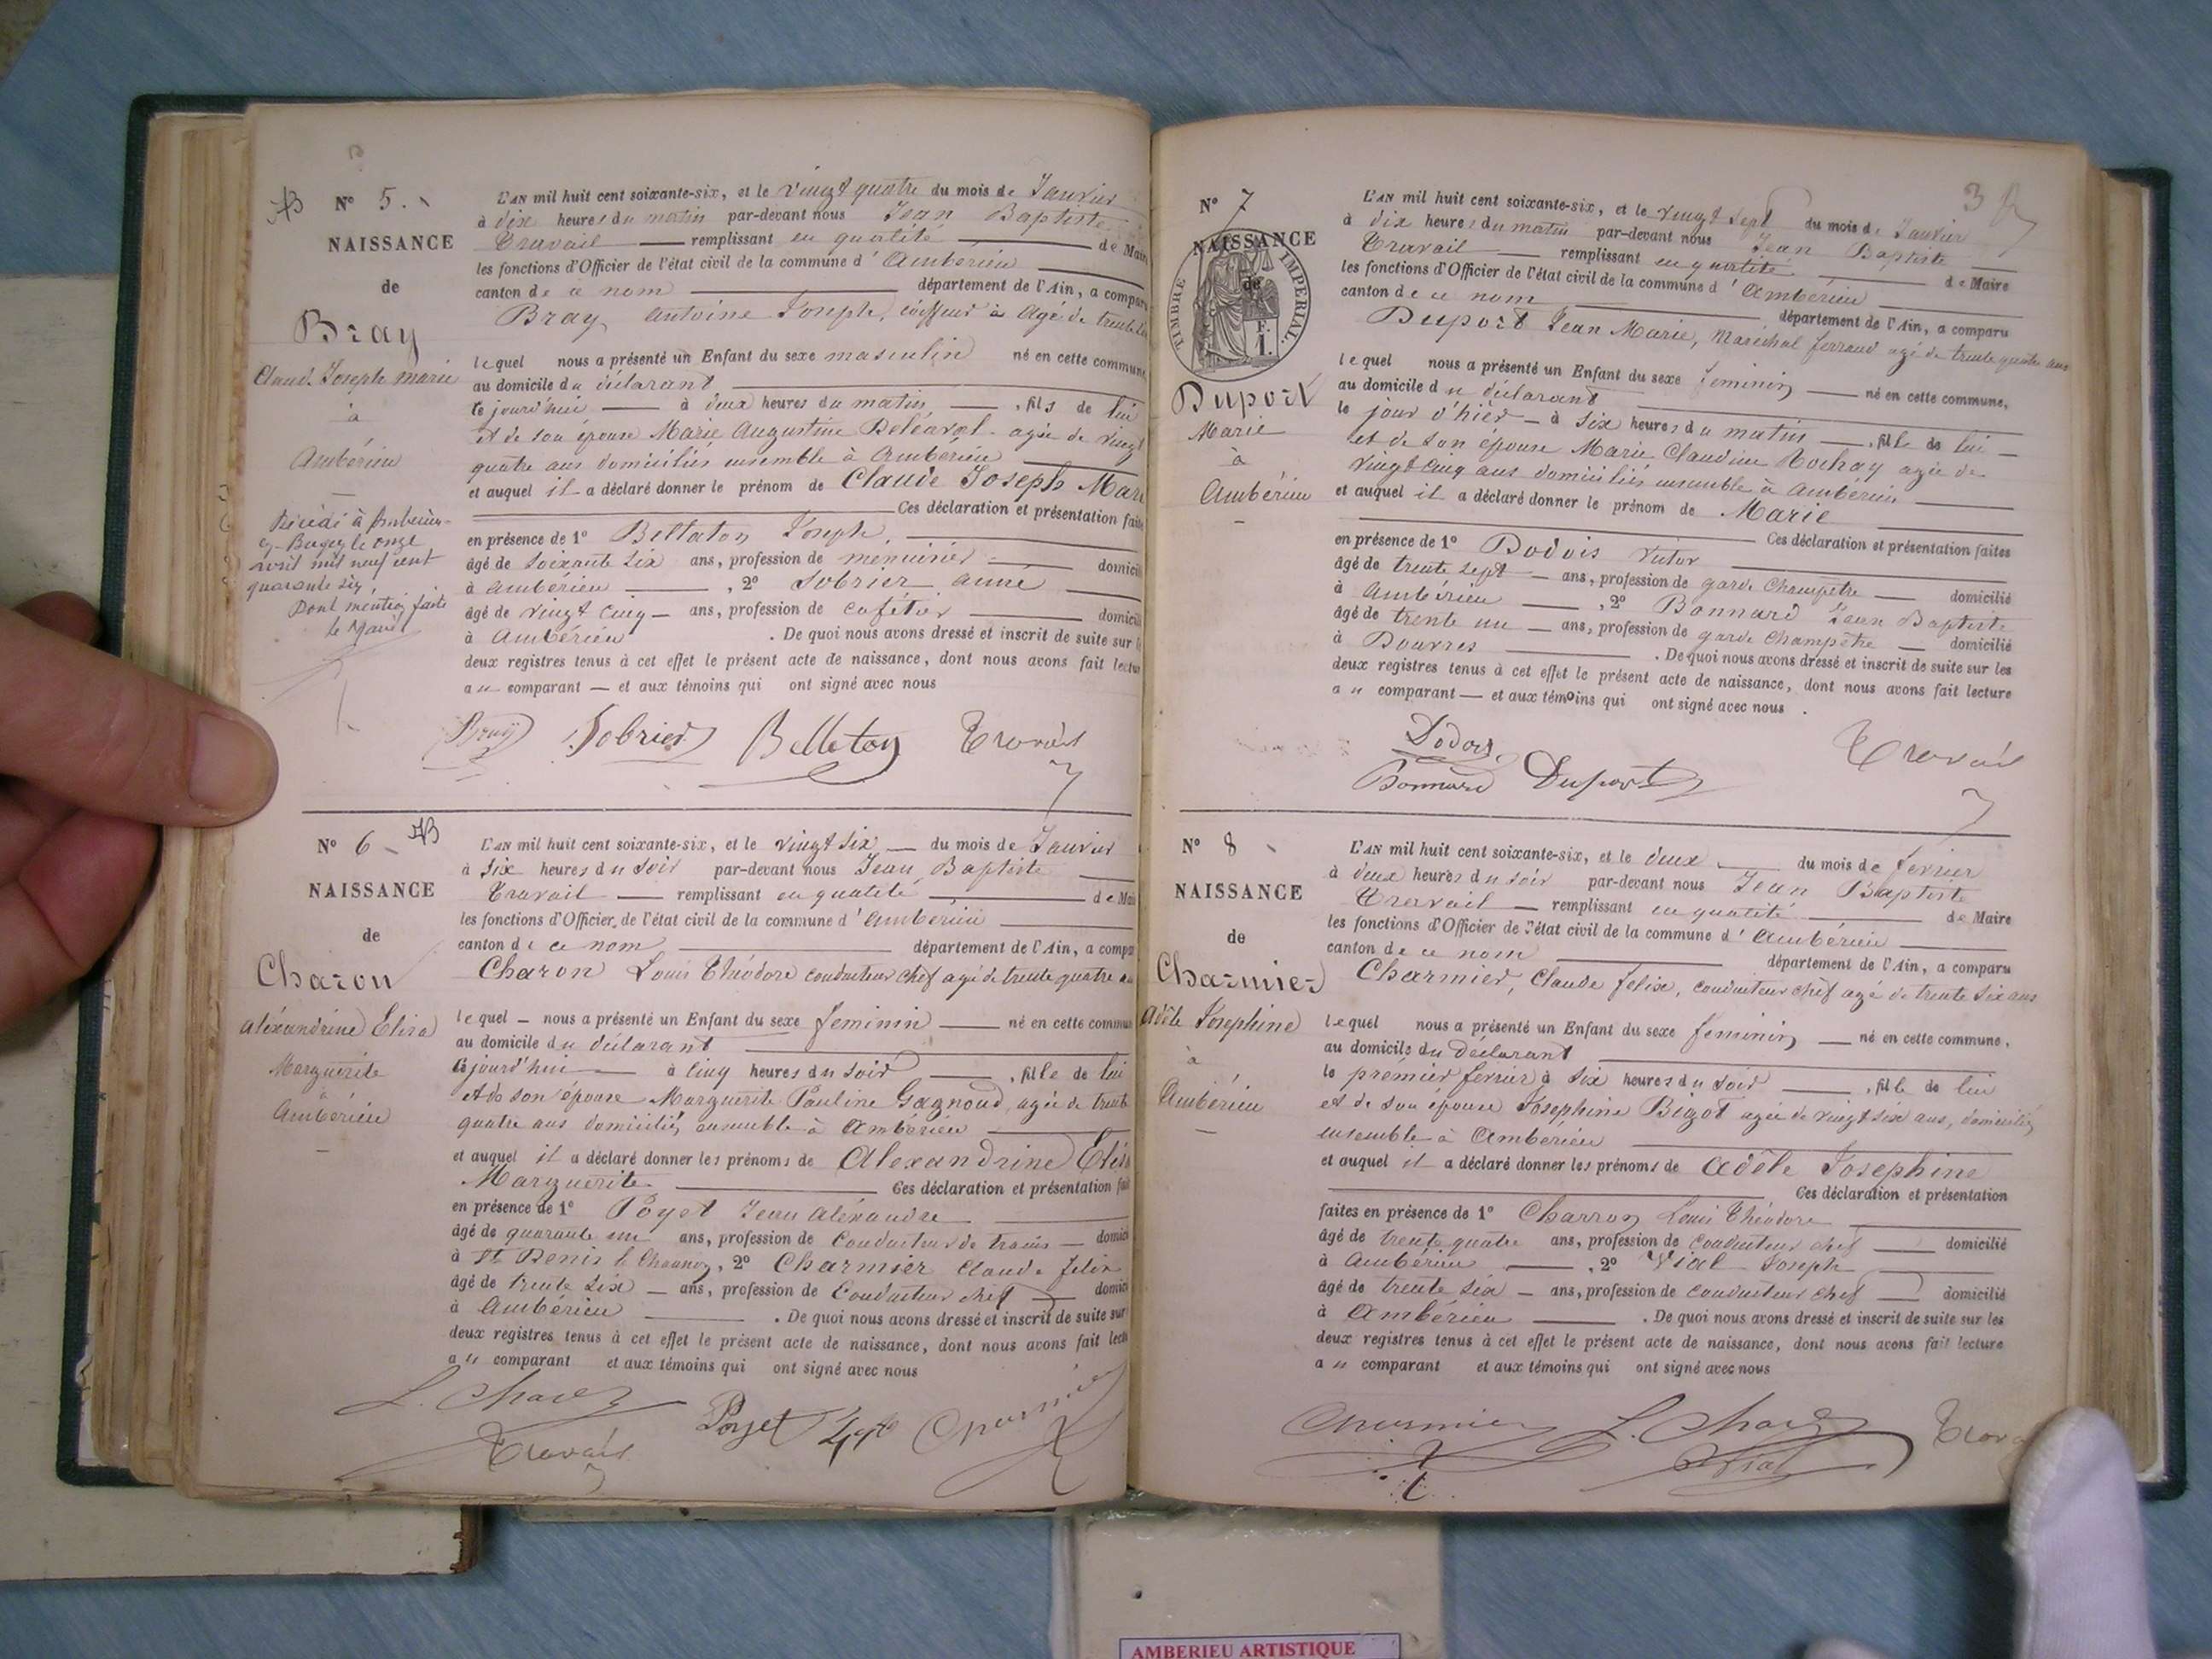 N° 5.
NAISSANCE
de
Bray
Claude Joseph marie
à
Ambérieu
Décédé à Ambérieu-
en-Bugey le onze
avril mil neuf cent
quarante six,
Dont mention faite
le Maire
L'AN mil huit cent soixante-six, et le vingt quatre du mois de Janvier
à dix heures du matin par-devant nous Jean Baptiste
Travail remplissant en qualité de Maire
les fonctions d'Officier de l'état civil de la commune d'Ambérieu
canton de ce nom département de l'Ain, a comparu
Bray Antoine Joseph, coiffeur à Agé de trente
lequel nous a présenté un Enfant du sexe masculin né en cette commune,
au domicile du déclarant
ce jourd'hui à deux heures du matin, fils de lui
et de son épouse Marie Augustine agée de vingt
quatre ans domiciliés ensemble à Ambérieu
et auquel il a déclaré donner le prénom de Claude Joseph Mari
Ces déclaration et présentation faites
en présence de 1° Belleton Joseph,
âgé de soixante six ans, profession de menuisier domicilié
à Ambérieu, 2° Sobrier anné
âgé de vingt cinq ans, profession de cafetier domicilié
à Ambérieu. De quoi nous avons dressé et inscrit de suite sur l
deux registres tenus à cet effet le présent acte de naissance, dont nous avons fait lectur
au comparant et aux témoins qui ont signé avec nous
Bray Sobrier Belleton Travail
N° 6
NAISSANCE
de
Charon
Aléxandrine Elisa
Marguerite
à
Ambérieu
L'AN mil huit cent soixante-six, et le vingt six du mois de Janvier
à six heures du soir par-devant nous Jean Baptiste
Travail remplissant en qualité de Mai
les fonctions d'Officier de l'état civil de la commune d'Ambérieu
canton de ce nom département de l'Ain, a compar
Charon Louis Théodore conducteur chef agé de trente quatre an
lequel nous a présenté un Enfant du sexe feminin né en cette commun
au domicile du déclarant
ce jourd'hui à cinq heures du soir, fille de lui
et de son épouse Marguerite Pauline Gagnoud, agée de trente
quatre ans domiciliés ensemble à Ambérieu
et auquel il a déclaré donner les prénoms de Alexandrine Elisa
Marguerite Ces déclaration et présentation fait
en présence de 1° Poyet Jean Aléxandre
âgé de quarante un ans, profession de Conducteur de trains domici
à St Denis le Chaunoy, 2° Charmier Claude felix
âgé de trente six ans, profession de Conducteur chef domici
à Ambérieu. De quoi nous avons dressé et inscrit de suite sur
deux registres tenus à cet effet le présent acte de naissance, dont nous avons fait lectu
au comparant et aux témoins qui ont signé avec nous
L. Charon Poyet Charmier
Travail
3
N° 7
NAISSANCE
de
TIMBRE IMPERIAL.
1 F.
Duport
Marie
à
Ambérieu
L'AN mil huit cent soixante-six, et le vingt sept du mois de Janvier
à dix heures du matin par-devant nous Jean Baptiste
Travail remplissant en qualité de Maire
les fonctions d'Officier de l'état civil de la commune d'Ambérieu
canton de ce nom département de l'Ain, a comparu
Duport Jean Marie, Maréchal ferrand agé de trente quatre ans
lequel nous a présenté un Enfant du sexe feminin né en cette commune,
au domicile du déclarant
le jour d'hier à six heures du matin, fille de lui
et de son épouse Marie Claudine Rochay agée de
vingt cinq ans domiciliés ensemble à Ambérieu
et auquel il a déclaré donner le prénom de Marie
Ces déclaration et présentation faites
en présence de 1° Dodois victor
âgé de trente sept ans, profession de garde Champêtre domicilié
à Ambérieu, 2° Bonnard Jean Baptiste
âgé de trente un ans, profession de garde Champêtre domicilié
à Douvres. De quoi nous avons dressé et inscrit de suite sur les
deux registres tenus à cet effet le présent acte de naissance, dont nous avons fait lecture
au comparant et aux témoins qui ont signé avec nous.
Dodois Travail
Bonnard Duport
N° 8
NAISSANCE
de
Charmier
Adèle Josephine
à
Ambérieu
L'AN mil huit cent soixante-six, et le deux du mois de fevrier
à deux heures du soir par-devant nous Jean Baptiste
Travail remplissant en qualité de Maire
les fonctions d'Officier de l'état civil de la commune d'Ambérieu
canton de ce nom département de l'Ain, a comparu
Charmier, Claude felix, conducteur chef agé de trente six ans
lequel nous a présenté un Enfant du sexe feminin né en cette commune,
au domicile du déclarant
le premier fevrier à six heures du soir, fille de lui
et de son épouse Josephine Bigot agée de vingt six ans, domiciliés
ensemble à Ambérieu
et auquel il a déclaré donner les prénoms de Adèle Josephine
Ces déclaration et présentation
faites en présence de 1° Charron Louis Théodore
âgé de trente quatre ans, profession de conducteur chef domicilié
à Ambérieu, 2° Vial Joseph
âgé de trente six ans, profession de conducteur chef domicilié
à Ambérieu. De quoi nous avons dressé et inscrit de suite sur les
deux registres tenus à cet effet le présent acte de naissance, dont nous avons fait lecture
au comparant et aux témoins qui ont signé avec nous
Charmier L. Charon Trava
Vial
AMBERIEU ARTISTIQUE